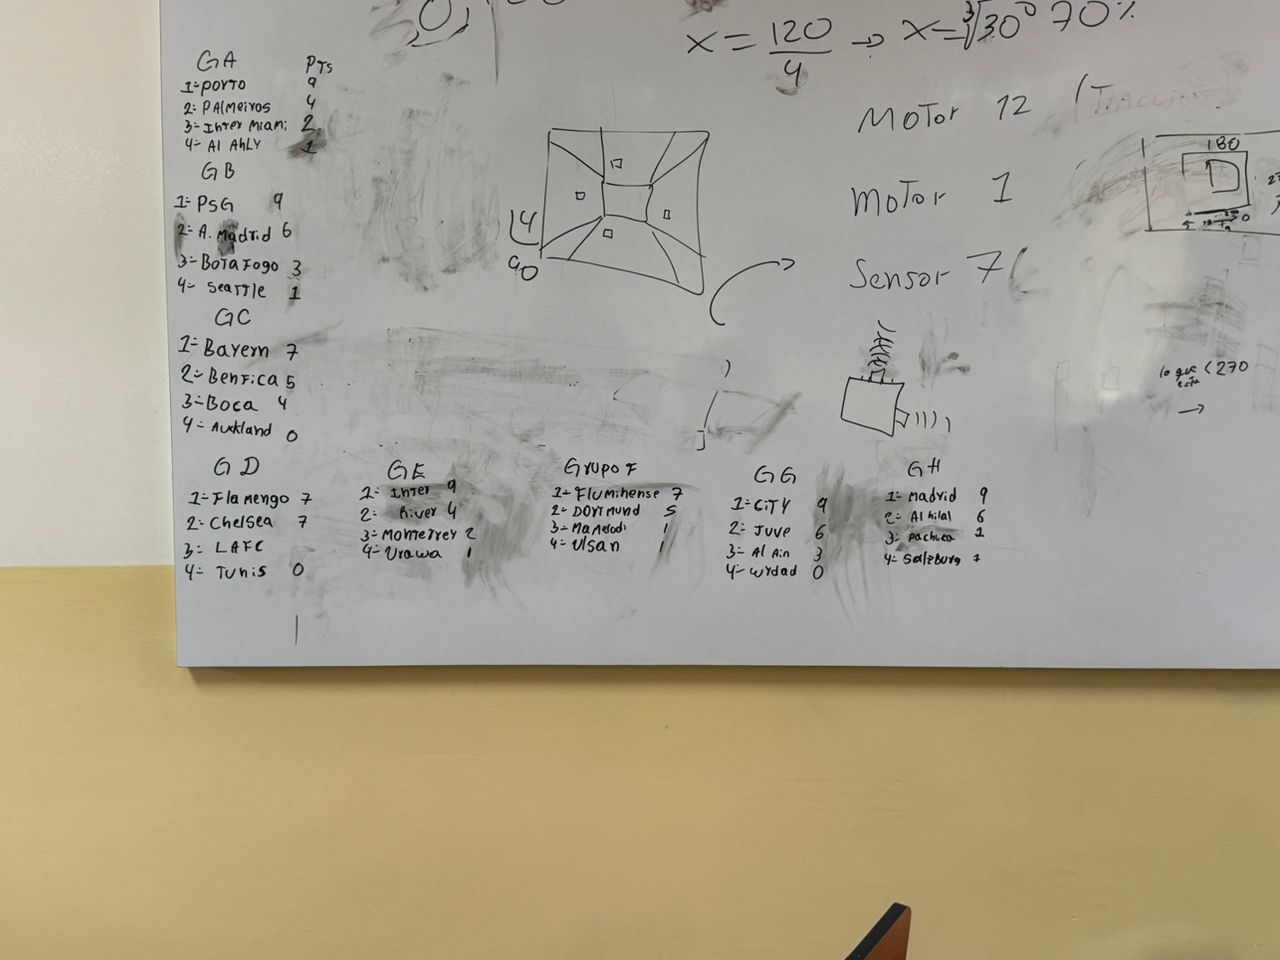 x = 120/4 → x = ∛30° 70%
GA PTs
1= PORTO 9
2= PALMEIROS 4
3= INTER MIAMI 2
4= Al AhLY 1
GB
1= PSG 9
2= A. Madrid 6
3= BOTAFOGO 3
4= Seattle 1
GC
1= Bayern 7
2= Benfica 5
3= Boca 4
4= Aukland 0
GD
1= Flamengo 7
2= Chelsea 7
3= LAFC
4= Tunis 0
GE
1= Inter 9
2= River 4
3= Monterrey 2
4= Urawa 1
Grupo F
1= Fluminense 7
2= Dortmund 5
3= Mamelodi 1
4= Ulsan 1
GG
1= CITY 9
2= Juve 6
3= Al Ain 3
4= Wydad 0
GH
1= Madrid 9
2= Al hilal 6
3= Pachuca 1
4= Salzburg 1
14
90
MOTOR 12
MOTOR 1
Sensor 7
180
0
lo que
esta
<270